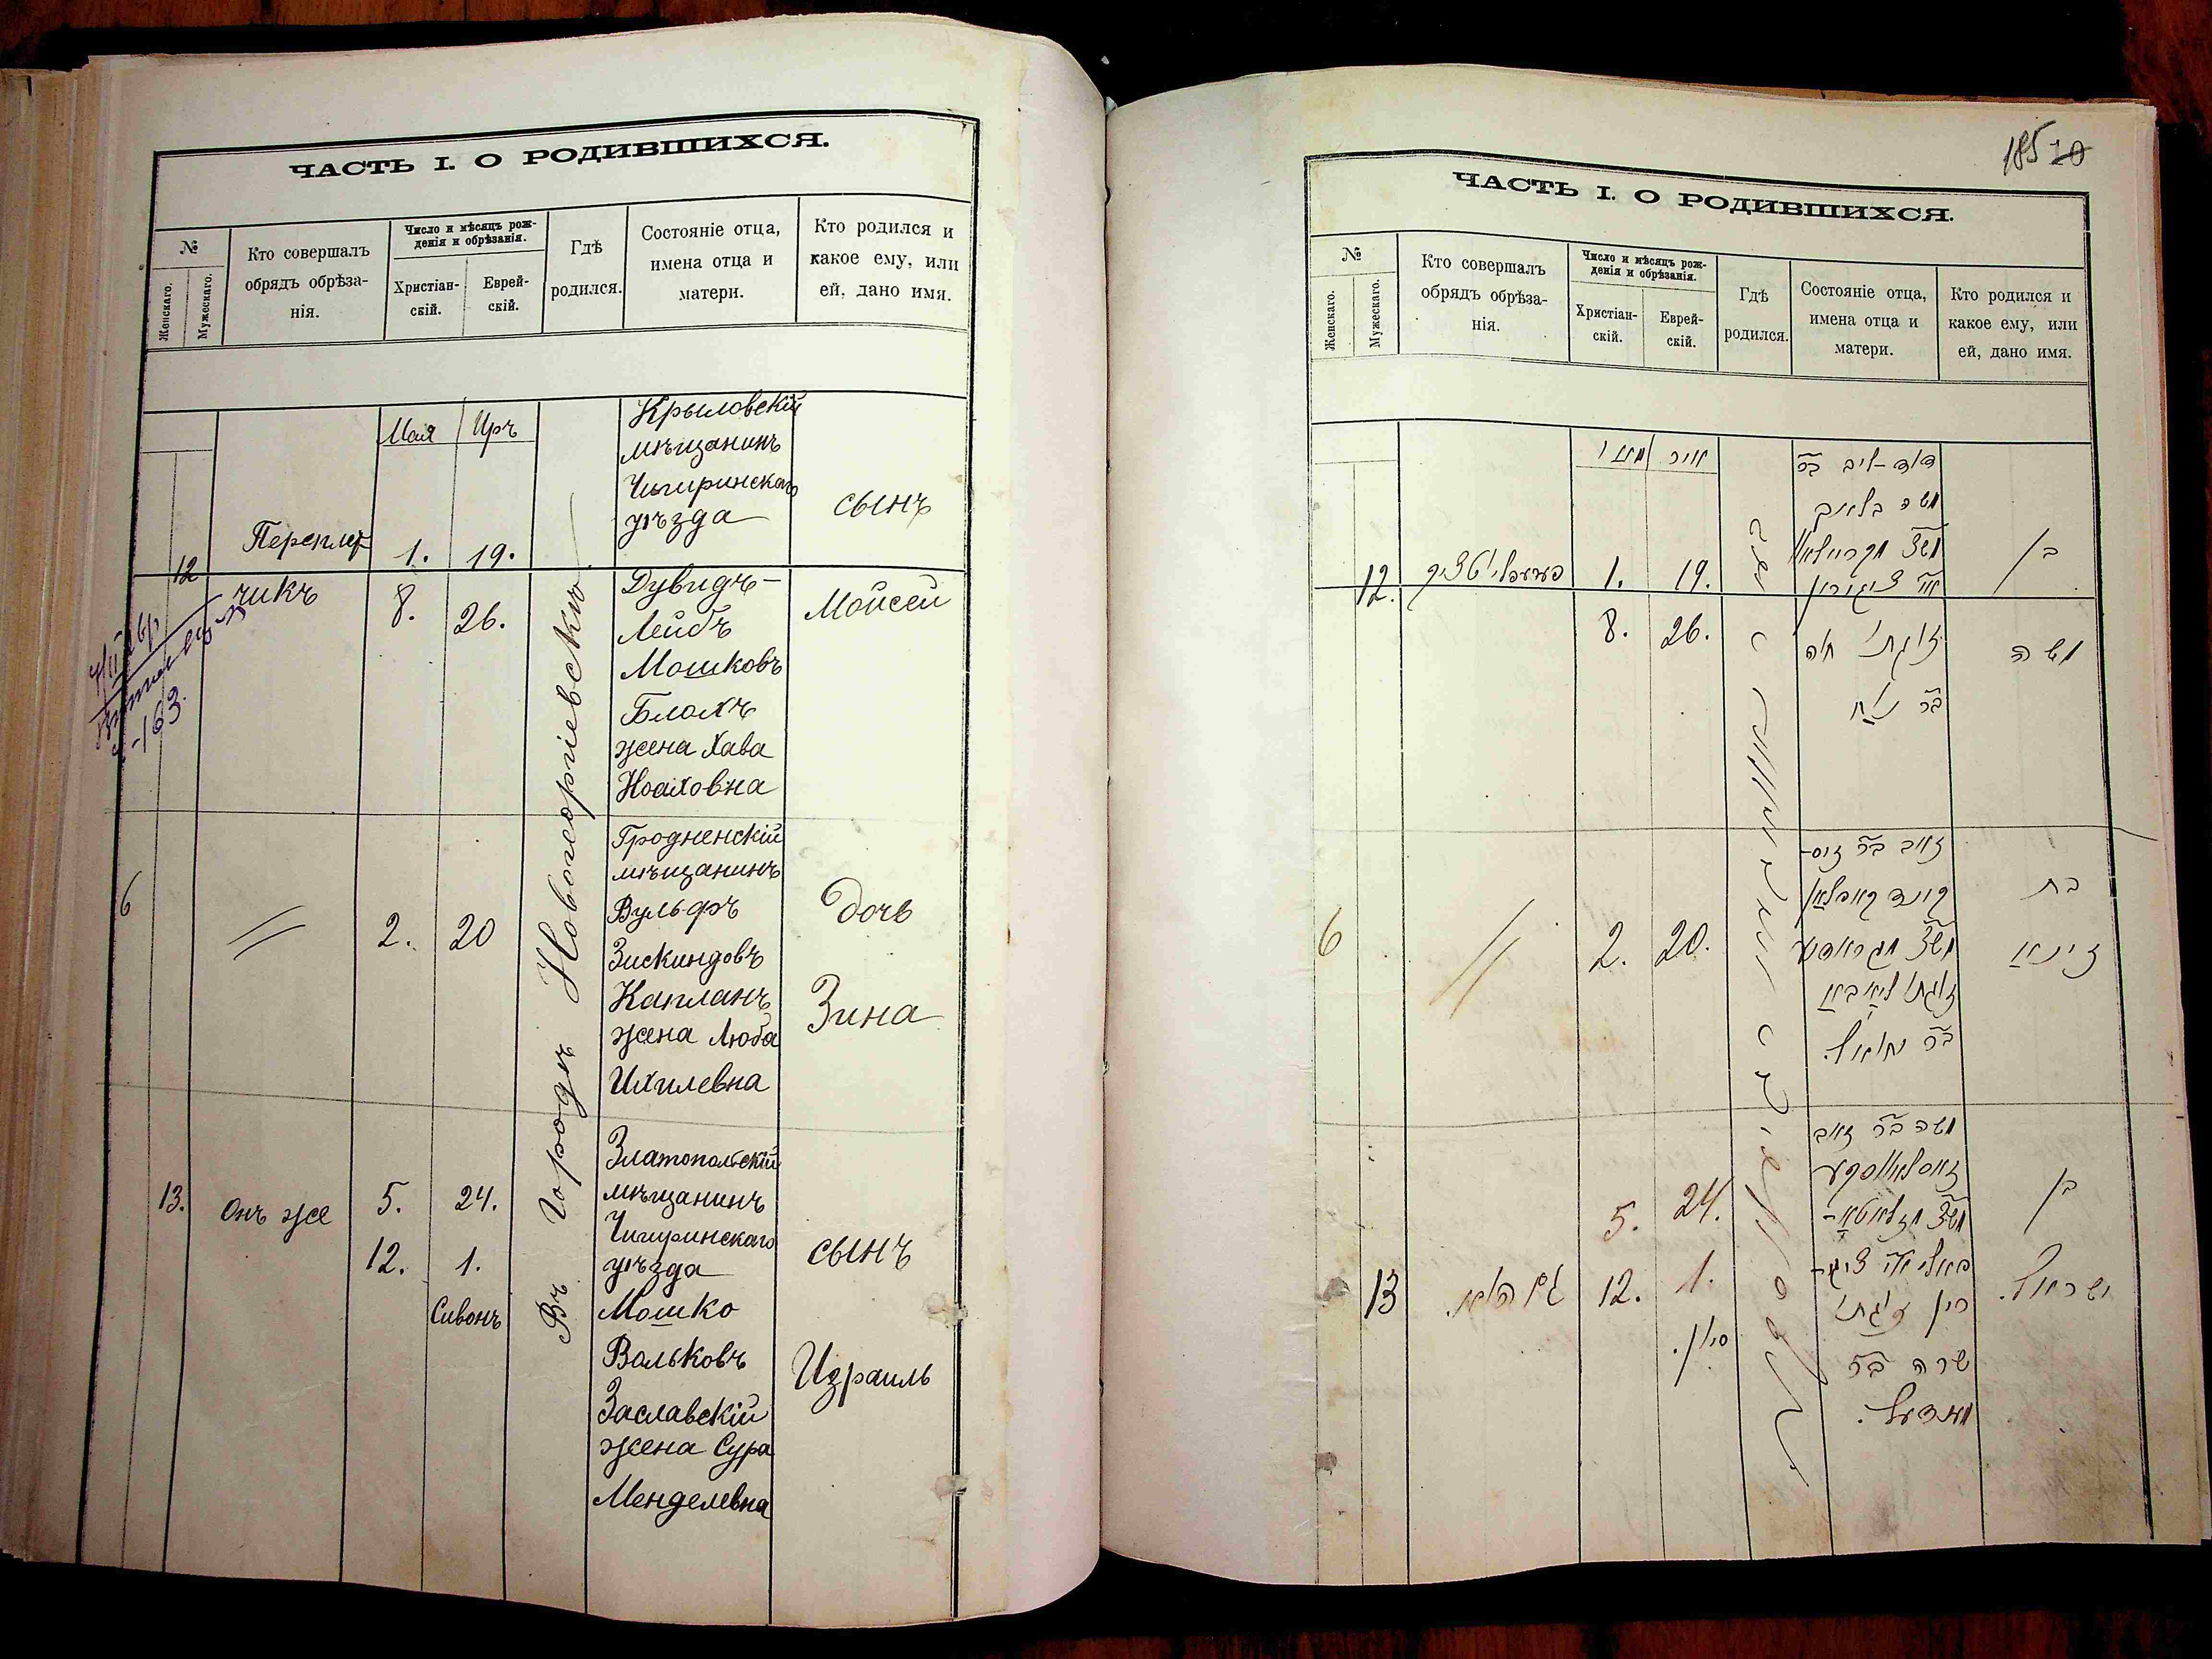 ЧАСТЬ I. О РОДИВШИХСЯ.
№
Женскаго.
Мужескаго.
Кто совершалъ
обрядъ обрѣза-
нія.
Число и мѣсяцъ рож-
денія и обрѣзанія.
Христіан-
скій.
Еврей-
скій.
Гдѣ
родился.
Состояніе отца,
имена отца и
матери.
Кто родился и
какое ему, или
ей, дано имя.
12
Переплет
чикъ
Мая
1.
8.
Иръ
19.
26.
Въ городѣ Новогеоргіевскѣ
Крыловскій
мѣщанинъ
Чигиринскаго
уѣзда
Дувидъ-
Лейбъ
Мошковъ
Блохъ
жена Хава
Ноаховна
сынъ
Мойсей
163.
6
"
2.
20
Гродненскій
мѣщанинъ
Вульфъ
Зискиндовъ
Капланъ
жена Люба
Ихилевна
дочь
Зина
13.
Онъ же
5.
12.
24.
1.
Сивонъ
Златопольскій
мѣщанинъ
Чигиринскаго
уѣзда
Мошко
Вольковъ
Заславскій
жена Сура
Менделевна
сынъ
Израиль
185 10
ЧАСТЬ I. О РОДИВШИХСЯ.
№
Женскаго.
Мужескаго.
Кто совершалъ
обрядъ обрѣза-
нія.
Число и мѣсяцъ рож-
денія и обрѣзанія.
Христіан-
скій.
Еврей-
скій.
Гдѣ
родился.
Состояніе отца,
имена отца и
матери.
Кто родился и
какое ему, или
ей, дано имя.
12.
1.
8.
אייר
19.
26.
דוד-ליב בר
משה בלאך
זוגתו חוה
בר נח
בן
משה
6
"
2.
20.
זאב בר זיס-
קינד קאפלאן
זוגתו ליובא
בר יחיאל.
בת
זינא
13
5.
12.
24.
1.
סיון.
משה בר זאב
זאסלאווסקי
רין זוגתו
שרה בר
מענדל.
בן
ישראל.